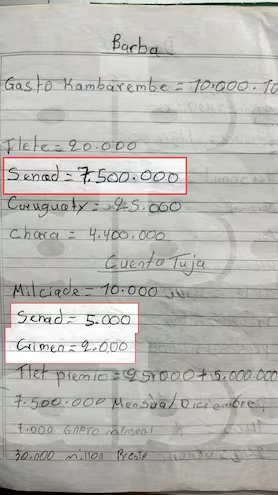 Barba
Gasto Kambarembe = 10.000.10
Flete = 20.000
Senad = 7.500.000
Curuguaty = 25.000
Chara = 4.400.000
Cuenta Tuja
Milciade = 10.000
Senad = 5.000
Crimen = 2.000
Flet premio = 25.000 + 5.000.000
7.500.000 Mensual Diciembre
7.000 Enero mensual
30.000 millon Preste